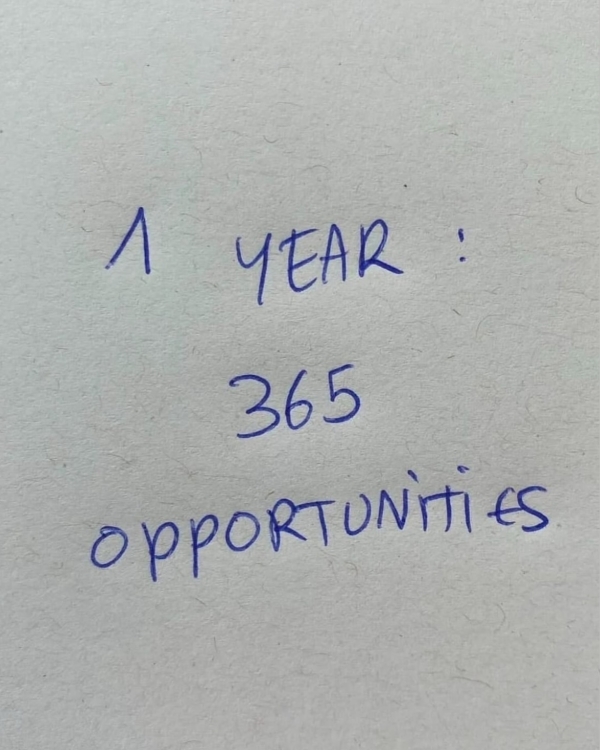 1 YEAR :
365
OPPORTUNiTiES